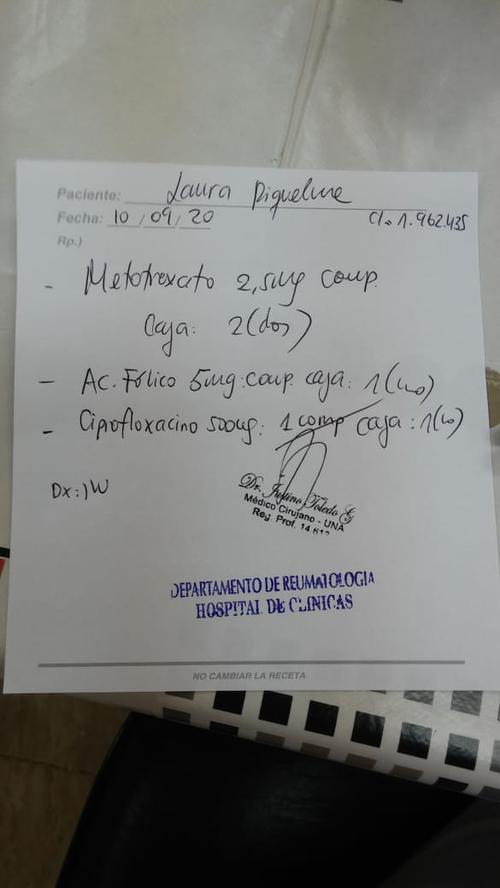 Paciente: Laura Riquelme
Fecha: 10 / 09 / 20 CI. 1.962.435
Rp.)
- Metotrexato 2,5mg comp.
Caja: 2 (dos)
- Ac. Fólico 5mg: comp. caja: 1 (uno)
- Ciprofloxacino 500mg: 1 comp caja: 1(uno)
Dx:
Dr. Toledo G
Médico Cirujano - UNA
Reg. Prof. 14
DEPARTAMENTO DE REUMATOLOGIA
HOSPITAL DE CLINICAS
NO CAMBIAR LA RECETA